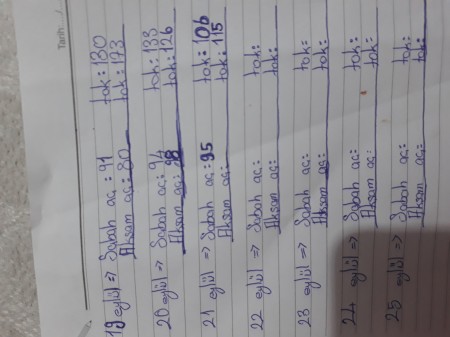 Tarih: .../
19 eylül => Sabah aç: 91 tok: 130
Akşam aç: 80 tok: 123
20 eylül => Sabah aç: 94 tok: 133
Akşam aç: 98 tok: 126
21 eylül => Sabah aç: 95 tok: 106
Akşam aç: tok: 115
22 eylül => Sabah aç: tok:
Akşam aç: tok:
23 eylül => Sabah aç: tok:
Akşam aç: tok:
24 eylül => Sabah aç: tok:
Akşam aç: tok:
25 eylül => Sabah aç: tok:
Akşam aç: tok: